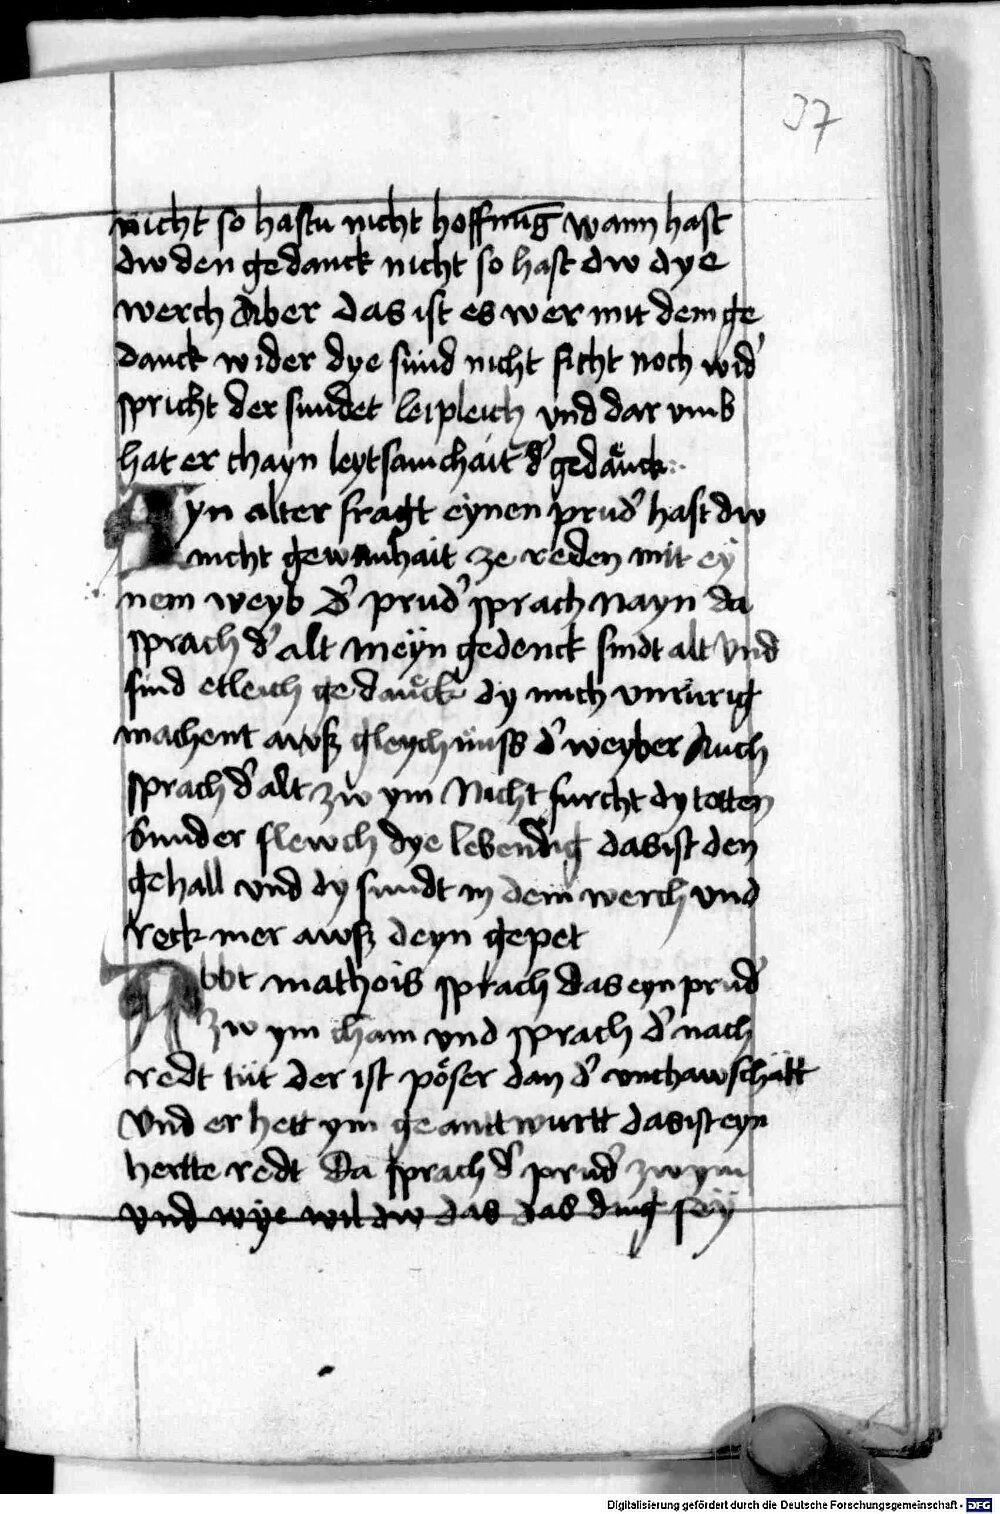 37
nicht so hastu nicht hoffnūg wann hast
dw den gedanck nicht so hast dw dye
werch Aber das ist es wer mit dem ge
danck wider dye sünd nicht ficht noch wid'
spricht der sundet leipleich vnd dar vmb
hat er chayn leytsamchait d' gedäuck
Ayn alter fragt eynen prud' hast dw
nicht gewanhait ze reden mit eÿ
nem weyb D' prud' sprach Nayn da
sprach d' alt meyn gedenck sindt alt vnd
sind etleich gedäuck dy mich vnrürig
machent awß gleychnüss d' weyber Auch
sprach d' alt zw ym Nicht furcht dy totten
Sunder flewch dye lebendig das ist den
gehall vnd dy sundt in dem werch vnd
reck mer awß deyn gepet
Abbt mathois sprach das eyn prud'
zw ym cham vnd sprach d' nach
redt tüt der ist pöser dan d' vnchawschätt
Vnd er hett ym geanttwurtt das ist eyn
hertte redt Da sprach d' prud' zw ym
vnd wÿe wil dw das das ding seÿ
Digitalisierung gefördert durch die Deutsche Forschungsgemeinschaft - DFG